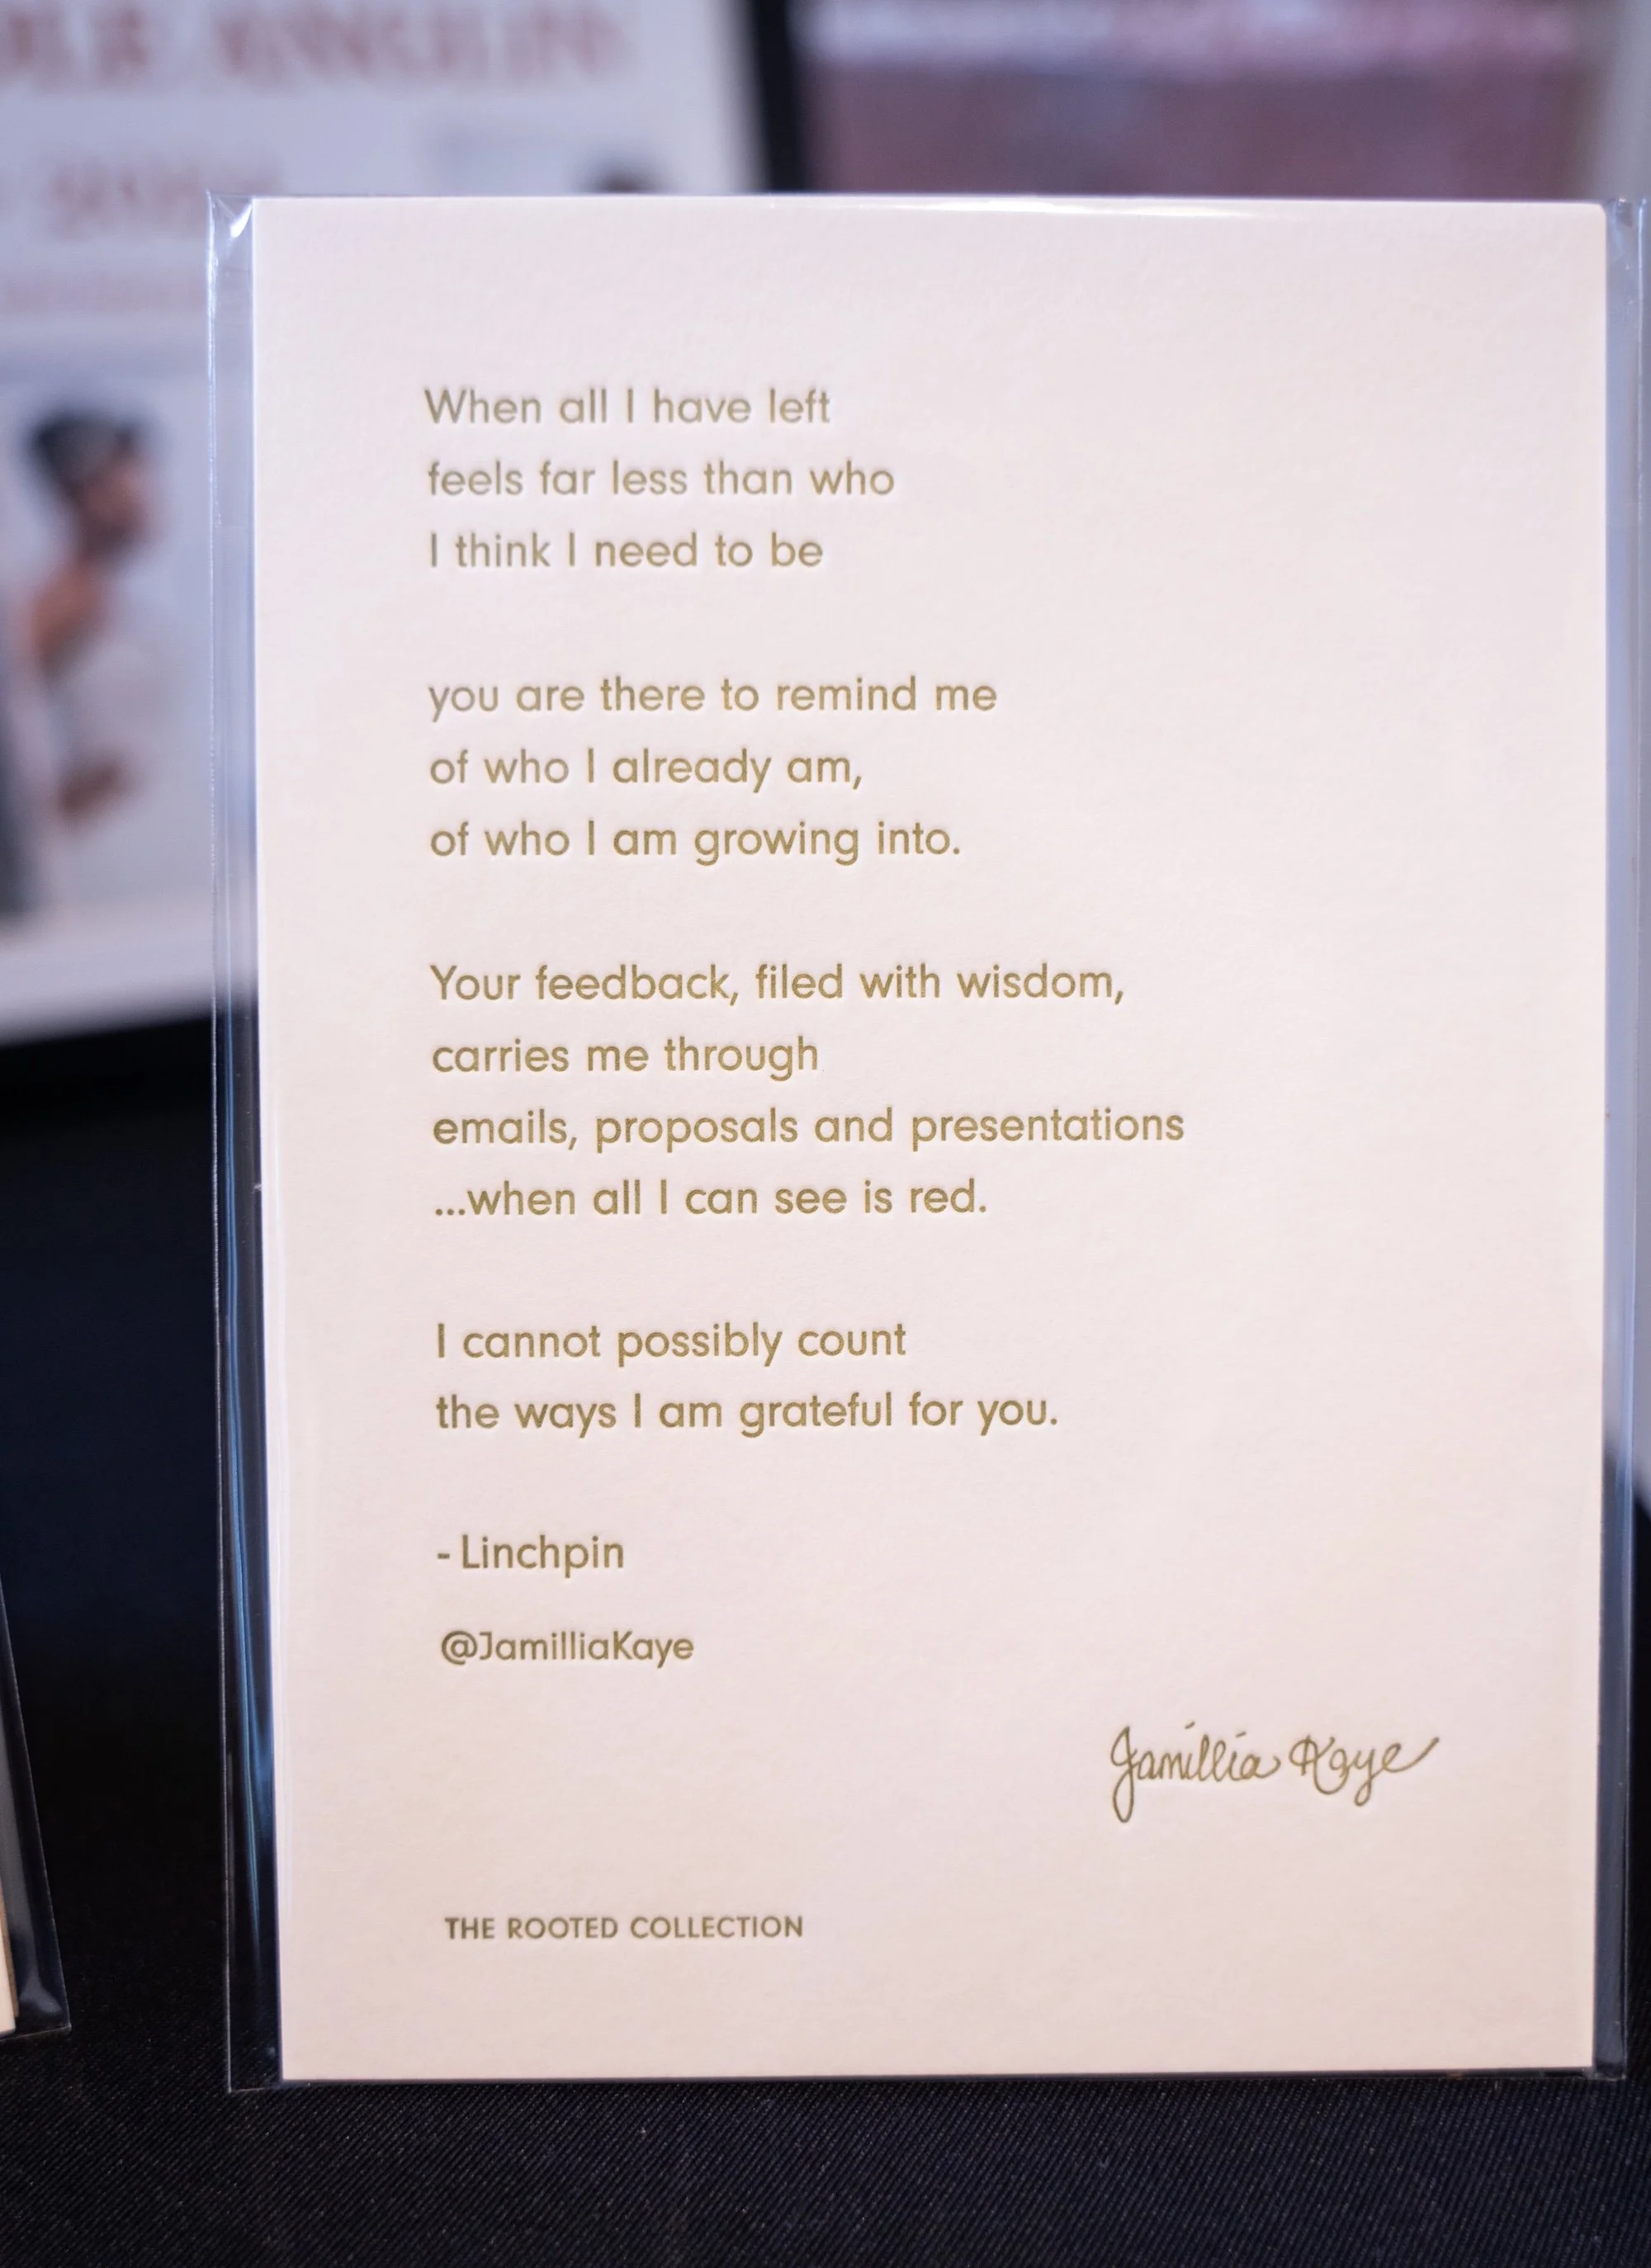 When all I have left
feels far less than who
I think I need to be
you are there to remind me
of who I already am,
of who I am growing into.
Your feedback, filed with wisdom,
carries me through
emails, proposals and presentations
...when all I can see is red.
I cannot possibly count
the ways I am grateful for you.
- Linchpin
@JamilliaKaye
Jamillia Kaye
THE ROOTED COLLECTION